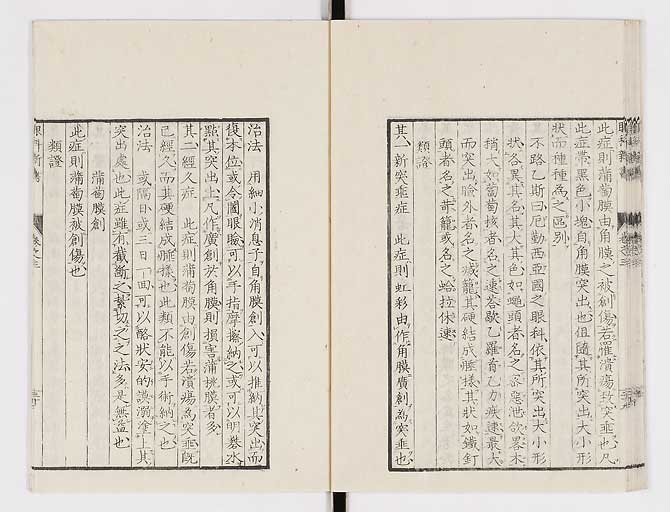 此症則蒲萄膜由角膜之被創傷若罹潰瘍致突垂也凡
此症帶黑色小塊自角膜突出也但隨其所突出大小形
狀而種種為之區別
不路乙斯曰厄勒西亞國之眼科依其所突出大小形
狀各異其名其大其色如蠅頭者名之
稍大如萄萄核者名之
而突出瞼外者名之
頭者名之 或名之蛤拉休速
類證
其一新突垂症 此症則虹彩由作角膜廣創為突垂也
治法 用細小消息子自角膜創入可以推納其突出而
復本位或令闔眼瞼可以手指摩擦納之或可以明礬水
點其突出上凡作廣創於角膜則損害蒲萄膜者多
其二經久症 此症則蒲萄膜由創傷若潰瘍為突垂既
已經久而其硬結成腫様也此類不能以手術納之也
治法 或隔日或三日一回可以酪狀安的謨溺塗上其
突出處也此症雖有截斷之絜切之之法多是無益也
蒲萄膜創
此症則蒲萄膜被創傷也
類證